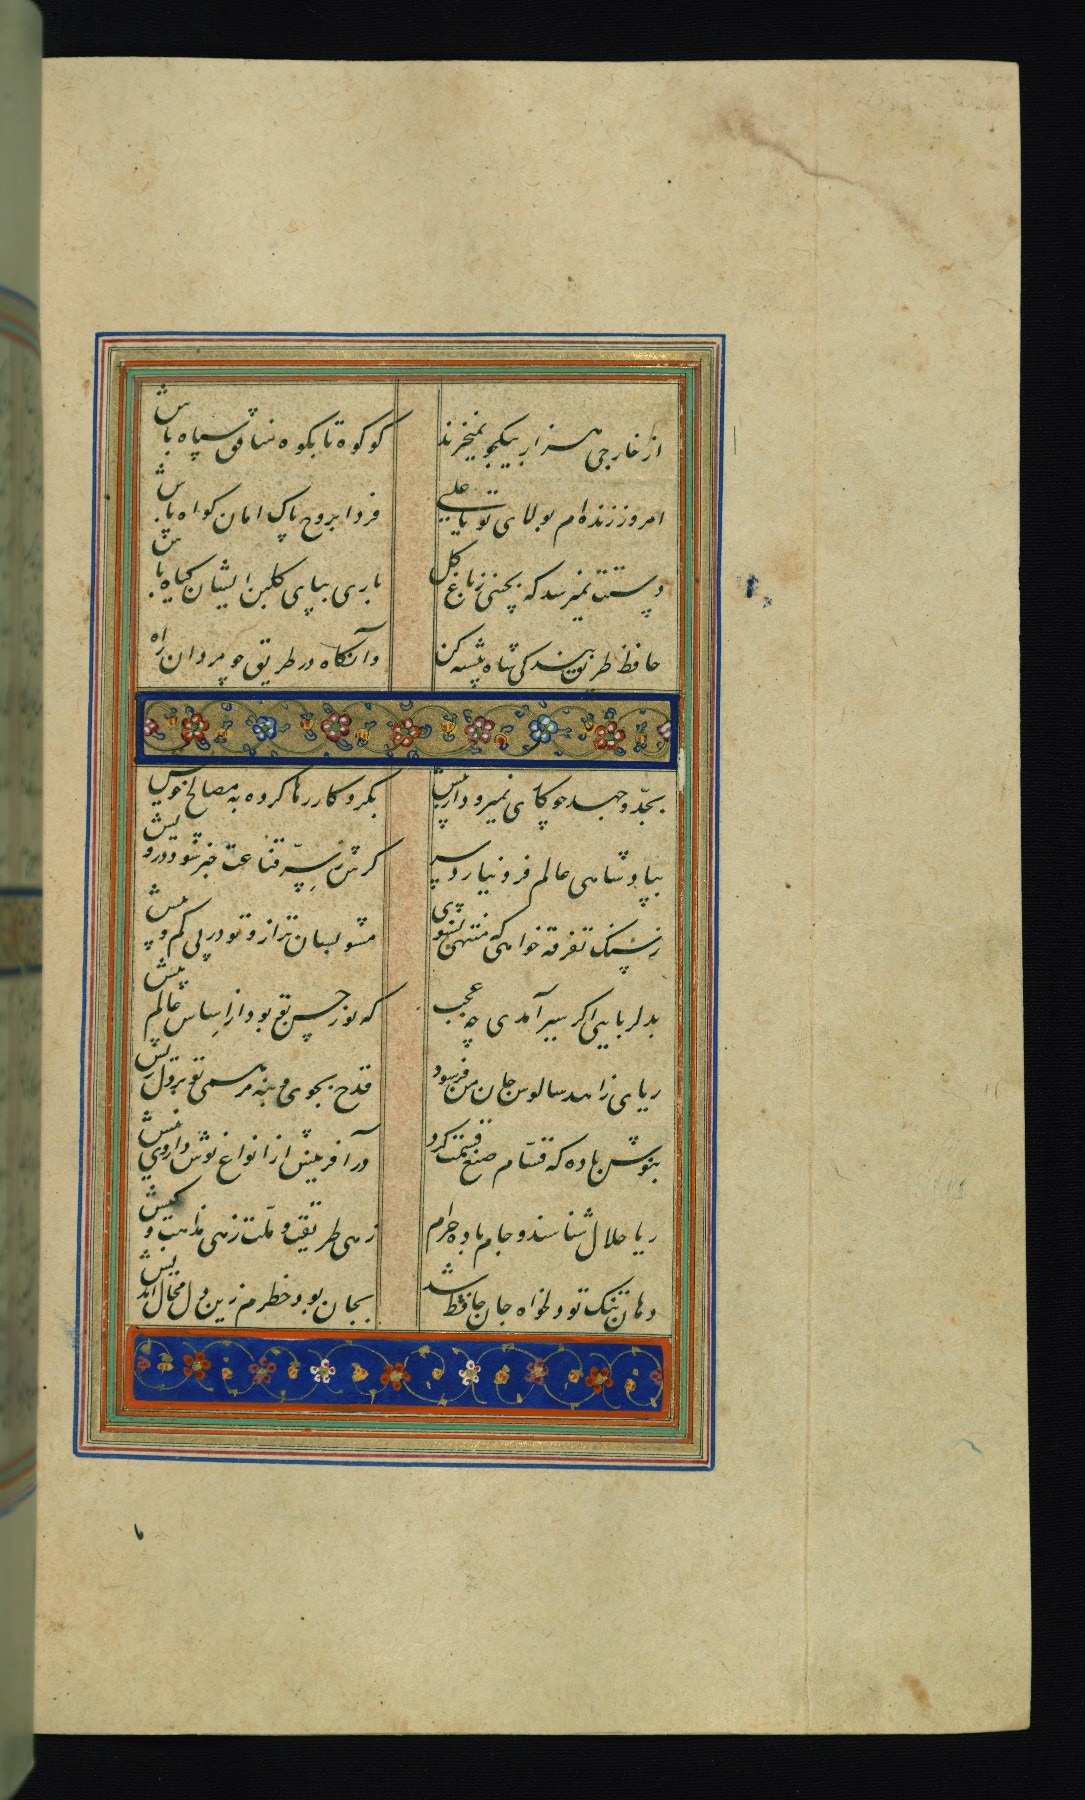 از خارجی هزار بیکجو نمیخرند
کو کوه تا بکوه منافق سپاه باش
امروز زنده‌ام بولای تو یا علی
فردا بروح پاک امامان کواه باش
دستت نمیرسد که بچنی ز باغ کل
باری بپای کلبن ایشان کیاه باش
حافظ طریق بندکی شاه پیشه کن
وآنکاه در طریق چو مردان راه
بجدّ و جهد چو کاری نمیرود از پیش
بکردکار رها کرده به مصالح خویش
بپادشاهی عالم فرو نیارد سر
کرش ز سرّ قناعت خبر شود درویش
ز سنک تفرقه خواهی که منحنی نشوی
مشو بسان ترازو تو در پی کم و پیش
بدلربایی اکر سیر آمدی چه عجب
که نور حسن تو بود از اساس عالم پیش
ریای زاهد سالوس جان من فرسود
قدح بجوی و بنه مرهمی تو بر دل ریش
بنوش باده که قسّام صنع قسمت کرد
در آفرینش از انواع نوش داروی نیش
ریا حلال شناسند و جام باده حرام
زهی طریقت و ملّت زهی مذاهب و کیش
دهان تنک تو دلخواه جان حافظ شد
بجان بود خطرم زین دل محال اندیش